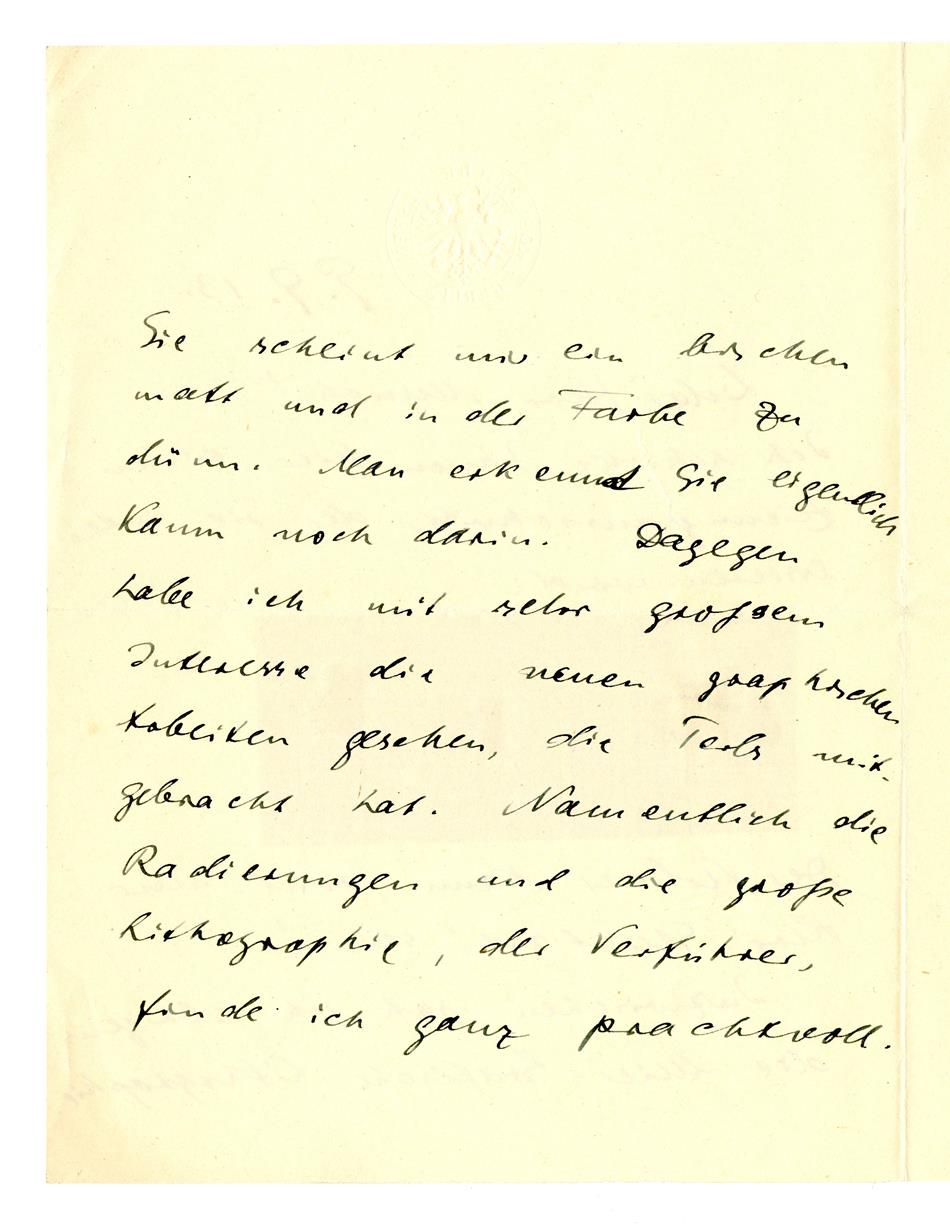 Sie scheint mir ein bischen
matt und in der Farbe zu
dünn. Man erkennt Sie eigentlich
kaum noch darin. Dagegen
habe ich mit sehr grossem
Interesse die neuen graphischen
Arbeiten gesehen, die mit-
gebracht hat. Namentlich die
Radierungen und die große
Lithographie, der Verführer,
finde ich ganz prachtvoll.